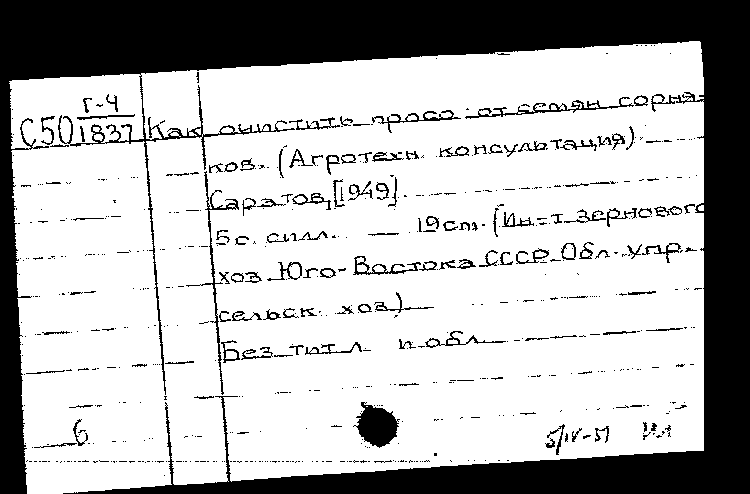 Г-4
С50 1837 Как очистить просо от семян сорня-
ков. (Агротехн. консультация)
Саратов, [1949].
5 с. илл. — 19 cm. (Ин-т зернового
хоз. Юго-Востока СССР. Обл. упр.
сельск. хоз.)
Без тит. л. и обл.
6
5/IV-51